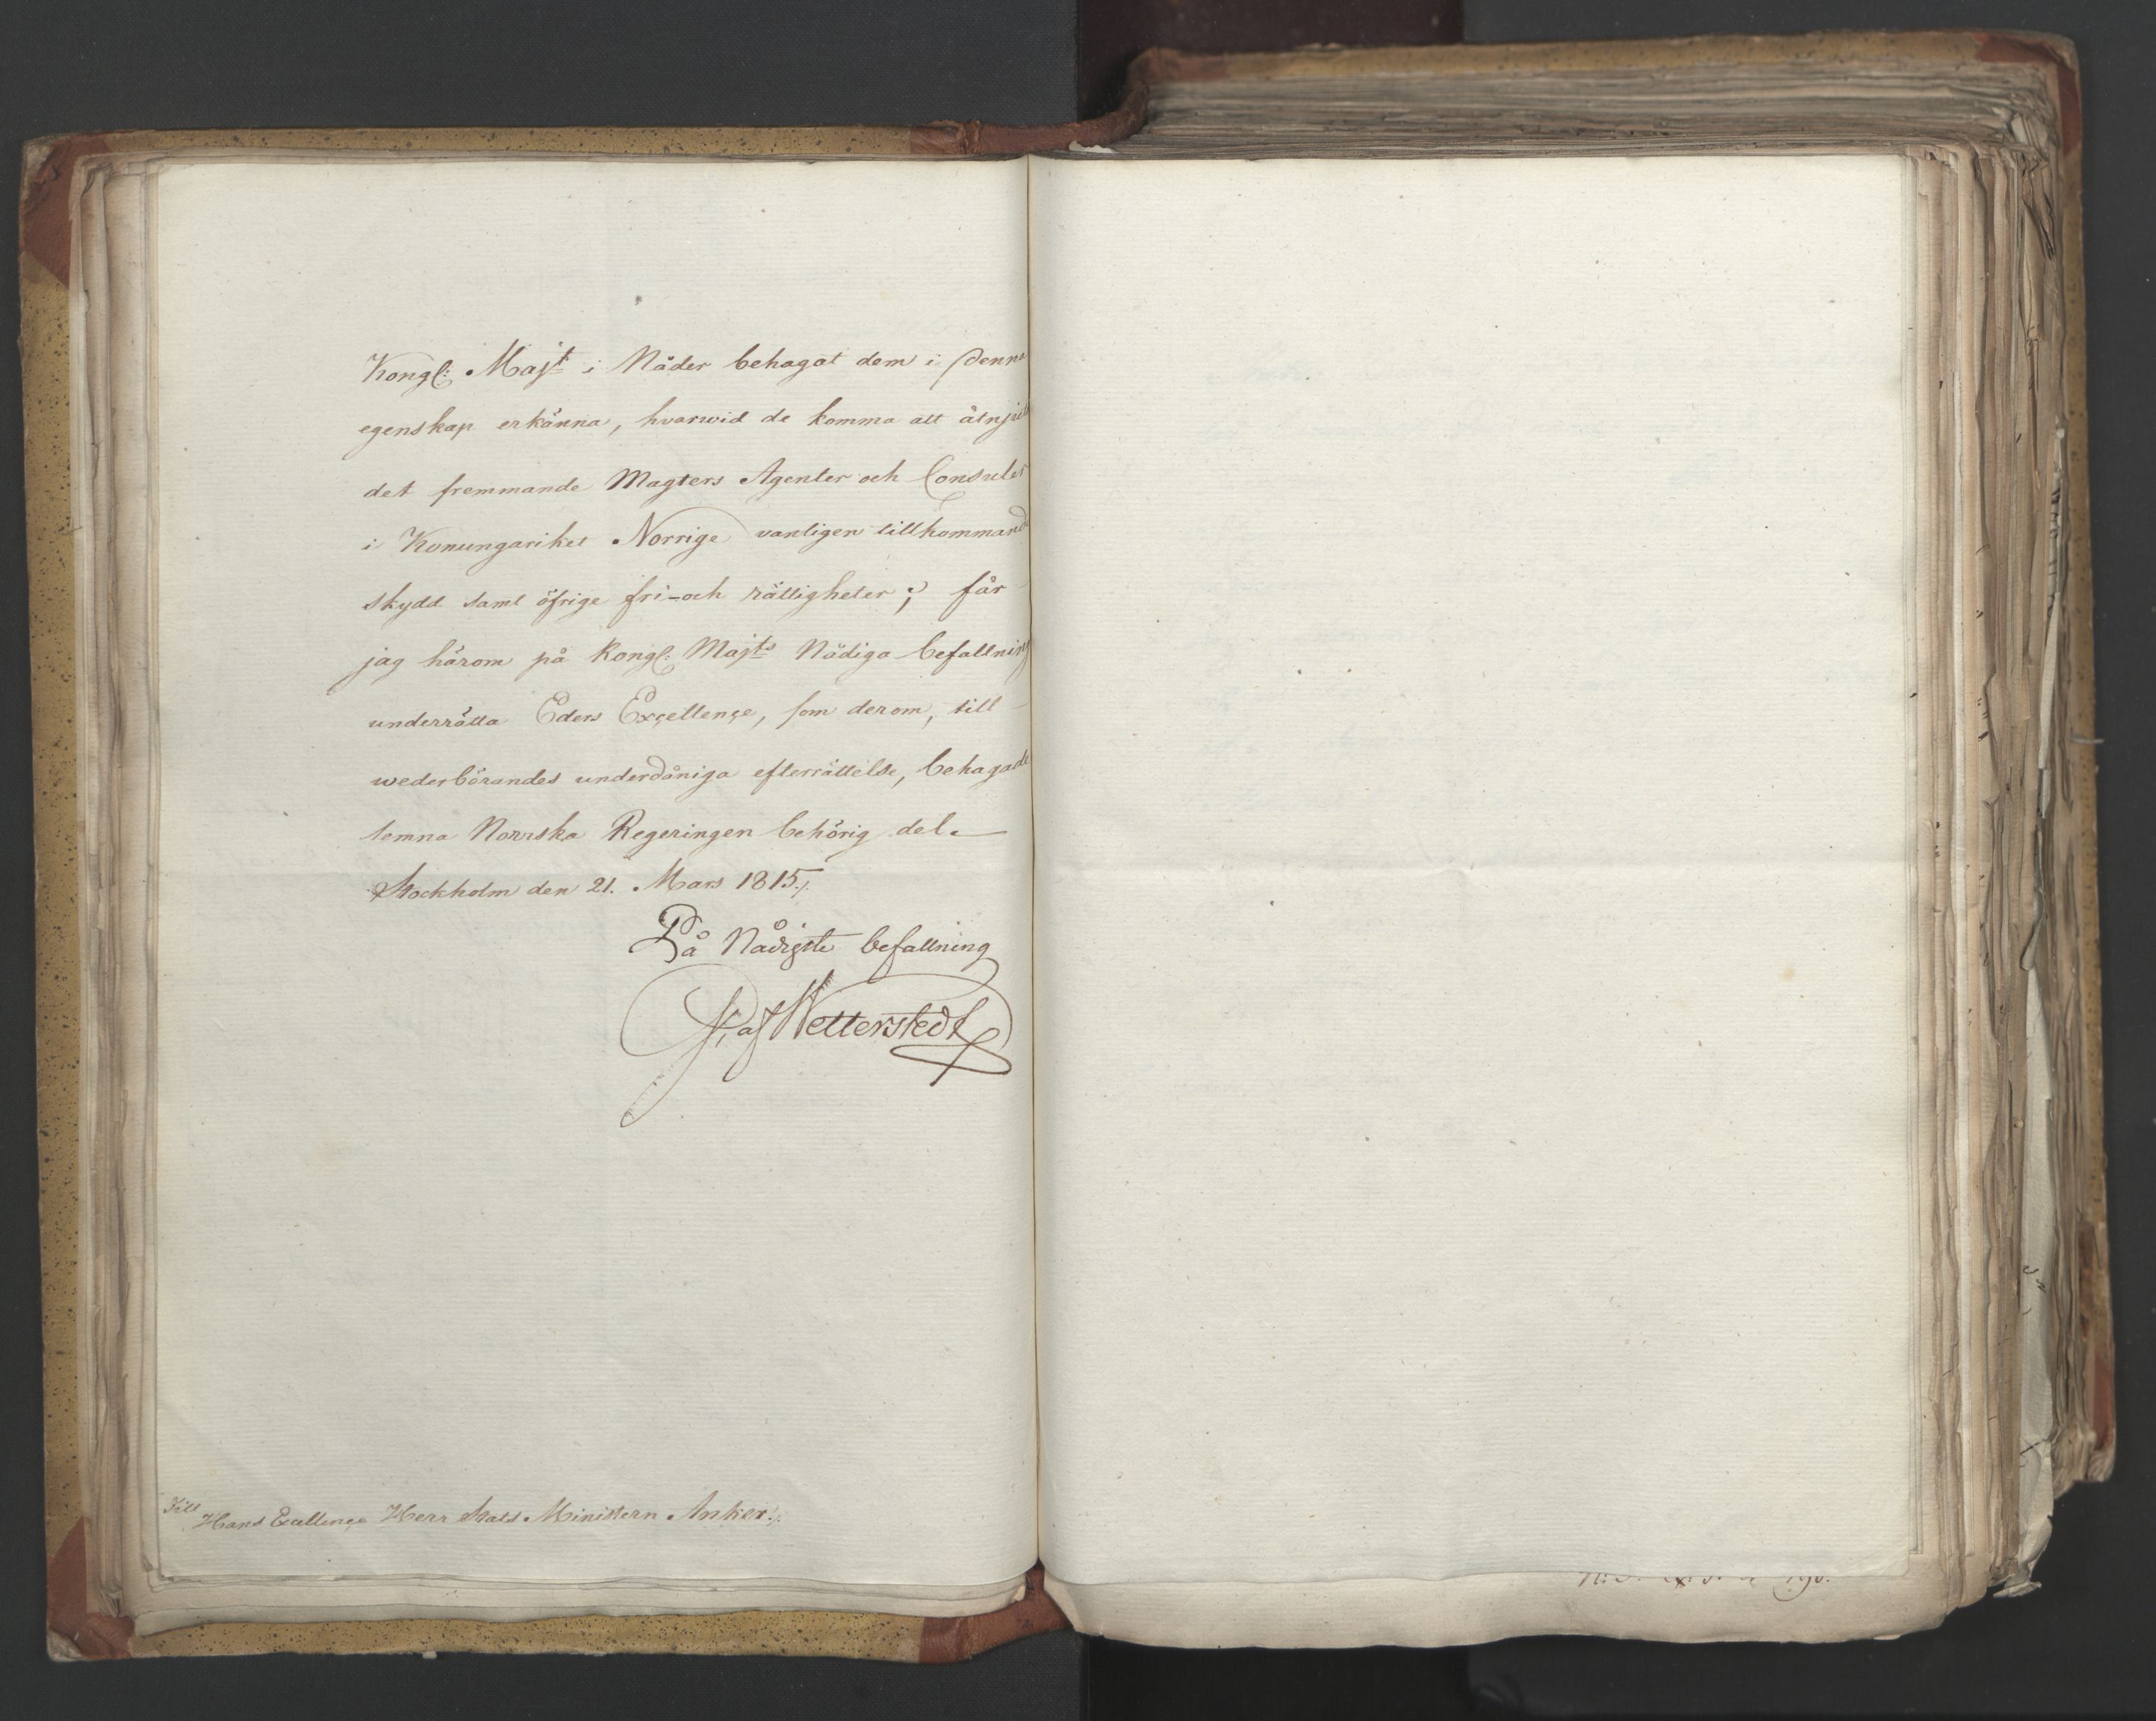 Kongl: Majt i Nåder behagat dem i denna
egenskap erkänna, hvarwid de komma att åtnju
det fremmande Magters Agenter och Consuler
i Konungariket Norrige vanligen tillkommand
skydd samt öfrige fri-och rättigheter; får
jag härom på Kongl: Majts Nådiga befallning
underrätta Eders Exçellençe, som derom, till
wederbörandes underdåniga efterrättelse, behagade
lemna Norrska Regeringen behörig del.
Stockholm den 21. Mars 1815./.
På Nådigste befallning
af Wetterstedt
Till
Hans Excellençe Herr Stats Ministern Anker./.